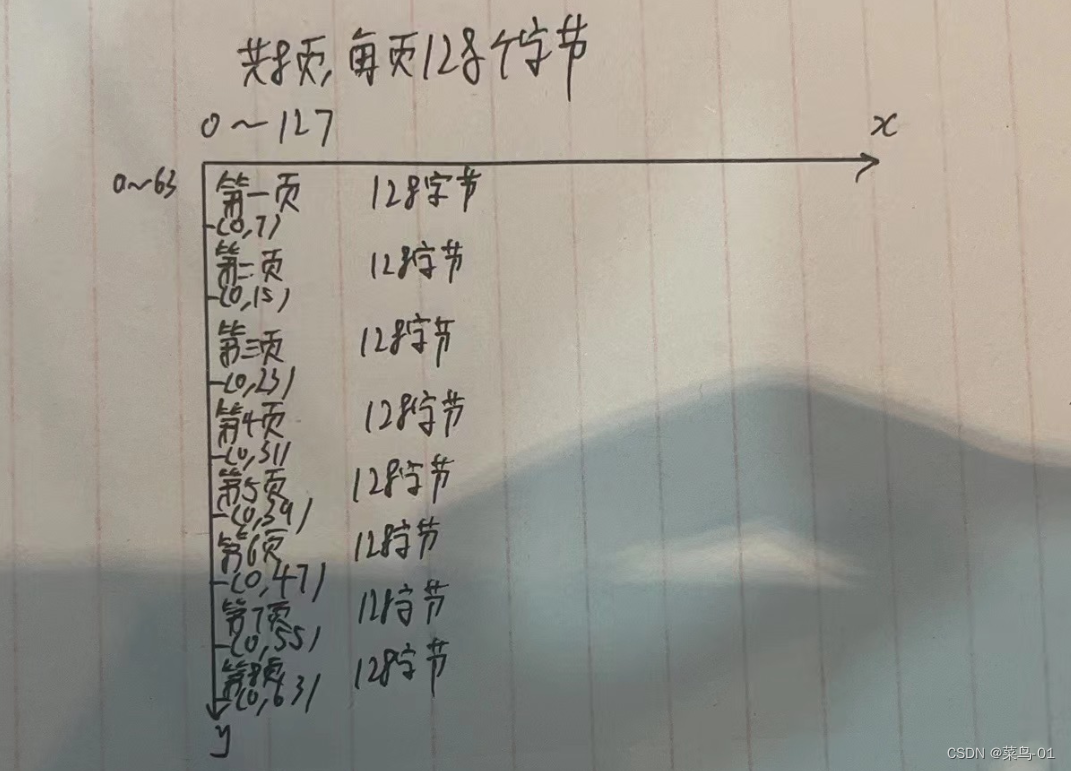 共8页,每页128个字节
0～127
x
0～63
第一页 128字节
(0,7)
第二页 128字节
(0,15)
第三页 128字节
(0,23)
第4页 128字节
(0,31)
第5页 128字节
(0,39)
第6页 128字节
(0,47)
第7页 128字节
(0,55)
第8页 128字节
(0,63)
y
CSDN @菜鸟-01